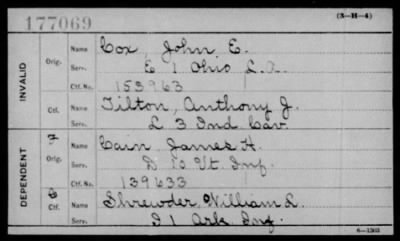 177069
(3-H-4)
INVALID
Orig.
Name Cox, John E.
Serv. E 1 Ohio L.A.
Ctf. No. 153963
Ctf.
Name Tilton, Anthony J.
Serv. L 3 Ind Cav.
DEPENDENT
Orig.
Name Cain, James H.
Serv. D 10 Vt Inf.
Ctf. No. 139633
Ctf.
Name Shrewder, William L.
Serv. I 1 Ark Inf.
6-1303